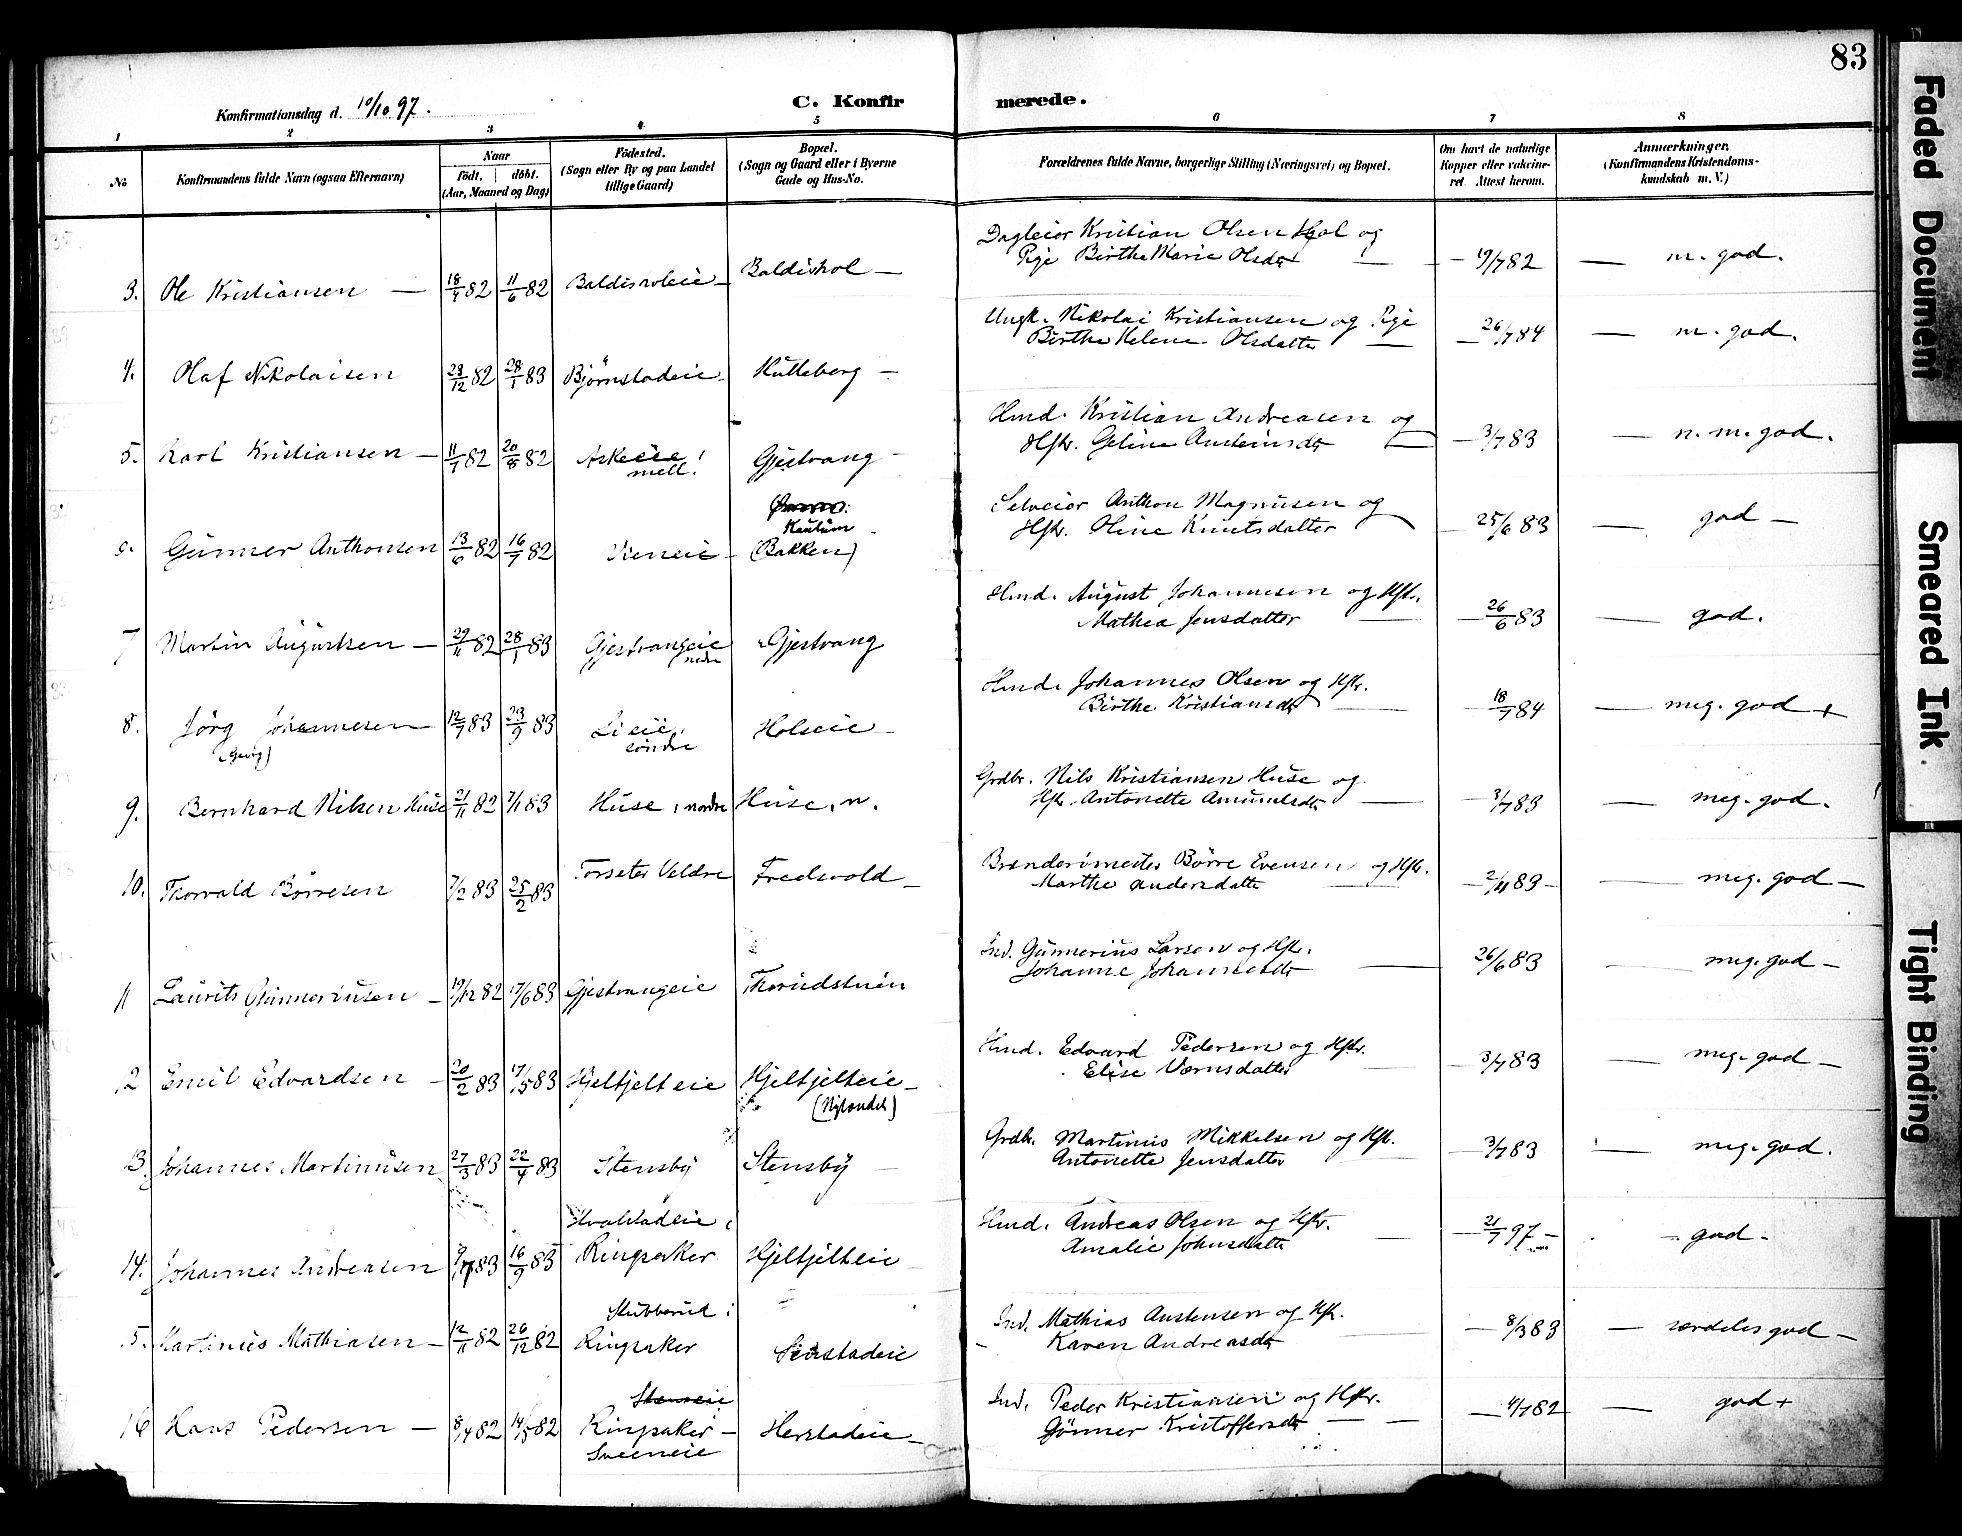 83
Konfirmationsdag d. 10/10 97.
C. Konfirmerede.
1 2 3 4 5 6 7 8
No
Konfirmandens fulde Navn (ogsaa Efternavn)
Naar
födt. döbt.
(Aar, Maaned og Dag)
Födested.
(Sogn eller By og paa Landet
tillige Gaard)
Bopæl.
(Sogn og Gaard eller i Byerne
Gade og Hus-No.
Forældrenes fulde Navne, borgerlige Stilling (Næringsvei) og Bopæl.
Om havt de naturlige
Kopper eller vakcine-
ret. Attest herom.
Anmærkninger.
(Konfirmandens Kristendoms-
kundskab m. V.)
3. Ole Kristiansen — 18/4 82 11/6 82 Baldishol —
Dagleier Kristian Olsen Hol og
Pige Birthe Marie Olsdtr — 19/7 82 — m. god.
4. Olaf Nikolaisen 29/12 82 28/1 83 Bjørnstadeie Hulleberg —
Ungk. Nikolai Kristiansen og Pige
Birthe Helene Olsdatter — 26/7 84 — m. god.
5. Karl Kristiansen — 11/7 82 20/8 82 Askeeie
mell. Gjestvang
Hmd. Kristian Andreasen og
Hstr. Geline Austeinsdtr — 3/7 83 — n. m. god.
Gunner Anthonsen 13/6 82 16/7 82 Vieneie
(Bakken)
Selveier Anthon Magnusen og
Hstr. Oline Knutsdatter — 25/6 83 — god —
7 Martin Augustsen — 29/11 82 28/1 83 Gjestvangeie
nedre Gjestvang
Hmd. August Johannesen og Hstr.
Mathea Jensdatter — 26/6 83 — god.
8. Jörg Johannesen 12/7 83 23/9 83 Lieie,
söndre Holseie —
(Georg)
Hmd. Johannes Olsen og Hstr.
Birthe Kristiansdtr — 18/7 84 — meg. god +
9. Bernhard Nilsen Huse 21/11 82 7/1 83 Huse, nordre Huse, n.
Grdbr. Nils Kristiansen Huse og
Hstr. Antonette Amundsdtr — 3/7 83 — meg. god.
10. Thorvald Börresen 7/2 83 25/2 83 Torseter Veldre Fredsvold —
Brænderimester Börre Evensen og Hstr.
Marthe Andersdatter — 2/11 83 — meg. god —
11 Laurits Gunneriusen — 19/12 82 17/6 83 Gjestvangeie Thorudstuen
Ind. Gunnerius Larsen og Hstr.
Johanne Johannesdtr — 26/6 83 — meg. god —
12 Emil Edvardsen — 20/2 83 17/5 83 Hjeltjelteie Hjeltjelteie —
(Nylandet)
Hmd. Edvard Pedersen og Hstr.
Elise Værnsdatter — 3/7 83 — meg. god —
13. Johannes Martinusen 27/3 83 22/4 83 Stensby Stensby —
Grdbr. Martinus Mikkelsen og Hstr.
Antonette Jensdatter — 3/7 83 — meg. god.
14. Johannes Andreasen 83 16/9 83
Ringsaker Hjeltjelteie
Hmd. Andreas Olsen og Hstr.
Amalie Johnsdatter — 21/7 97 — god —
15. Martinus Mathiasen — 12/11 82 26/12 82 Stubberud i
Ringsaker
Ind. Mathias Austensen og Hstr.
Karen Andreasdtr — 8/3 83 — særdeles god —
16 Hans Pedersen — 8/4 82 14/5 82
Ringsaker —
Sveeneie Herstadeie —
Ind. Peder Kristiansen og Hstr.
Gönner Kristoffersdtr — 4/7 82 — god +
Faded Document
Smeared Ink.
Tight Binding